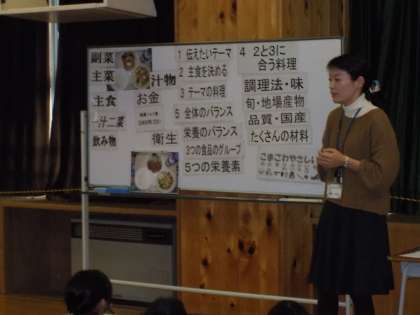 副菜
主菜
汁物
主食
お金
一汁二菜
飲み物
衛生
1 伝えたいテーマ
2 主食を決める
3 テーマの料理
5 全体のバランス
栄養のバランス
3つの食品のグループ
5つの栄養素
4 2と3に
合う料理
調理法・味
旬・地場産物
品質・国産
たくさんの材料
まごわやさしい